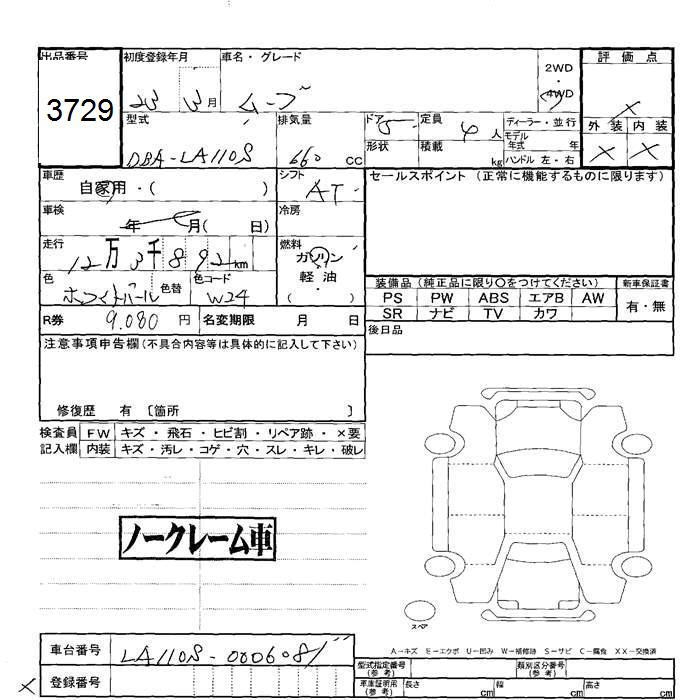 出品番号
3729
初度登録年月
23 3月
車名・グレード
ムーブ
2WD
・
4WD
評価点
×
外装 内装
× ×
型式
DBA-LA110S
排気量
660 cc
ドア
5
形状
定員
4 人
積載
kg
ディーラー・並行
モデル
年式 年
ハンドル 左・右
車歴
自家用・( )
シフト
AT
セールスポイント (正常に機能するものに限ります)
車検
年 月( 日)
冷房
走行
12万3千892km
燃料
ガソリン
・
軽油
( )
色
ホワイトパール
色替
色コード
W24
装備品 (純正品に限り○をつけてください)
新車保証書
PS PW ABS エアB AW
有・無
SR ナビ TV カワ
R券 9.080 円
名変期限 月 日
後日品
注意事項申告欄(不具合内容等は具体的に記入して下さい)
修復歴 有 〔箇所 〕
検査員 FW キズ・飛石・ヒビ割・リペア跡・×要
記入欄 内装 キズ・汚レ・コゲ・穴・スレ・キレ・破レ
ノークレーム車
スペア
A－キズ E－エクボ U－凹み W－補修跡 S－サビ C－腐食 XX－交換済
車台番号
LA110S-0006081
登録番号
×
型式指定番号
(参考)
類別区分番号
(参考)
車庫証明用
(参考)
長さ cm 幅 cm 高さ cm